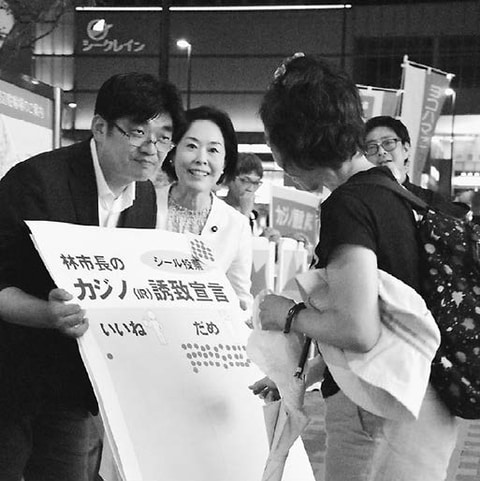 シークレイン
林市長の
シール投票
カジノ(IR)誘致宣言
いいね
だめ
ヨコハマ
カジノ